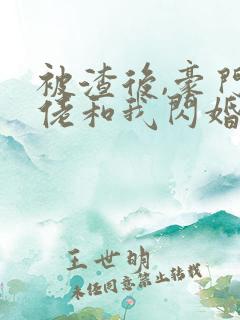 被渣後,豪門
佬和我閃婚
王世明
未经同意禁止转载